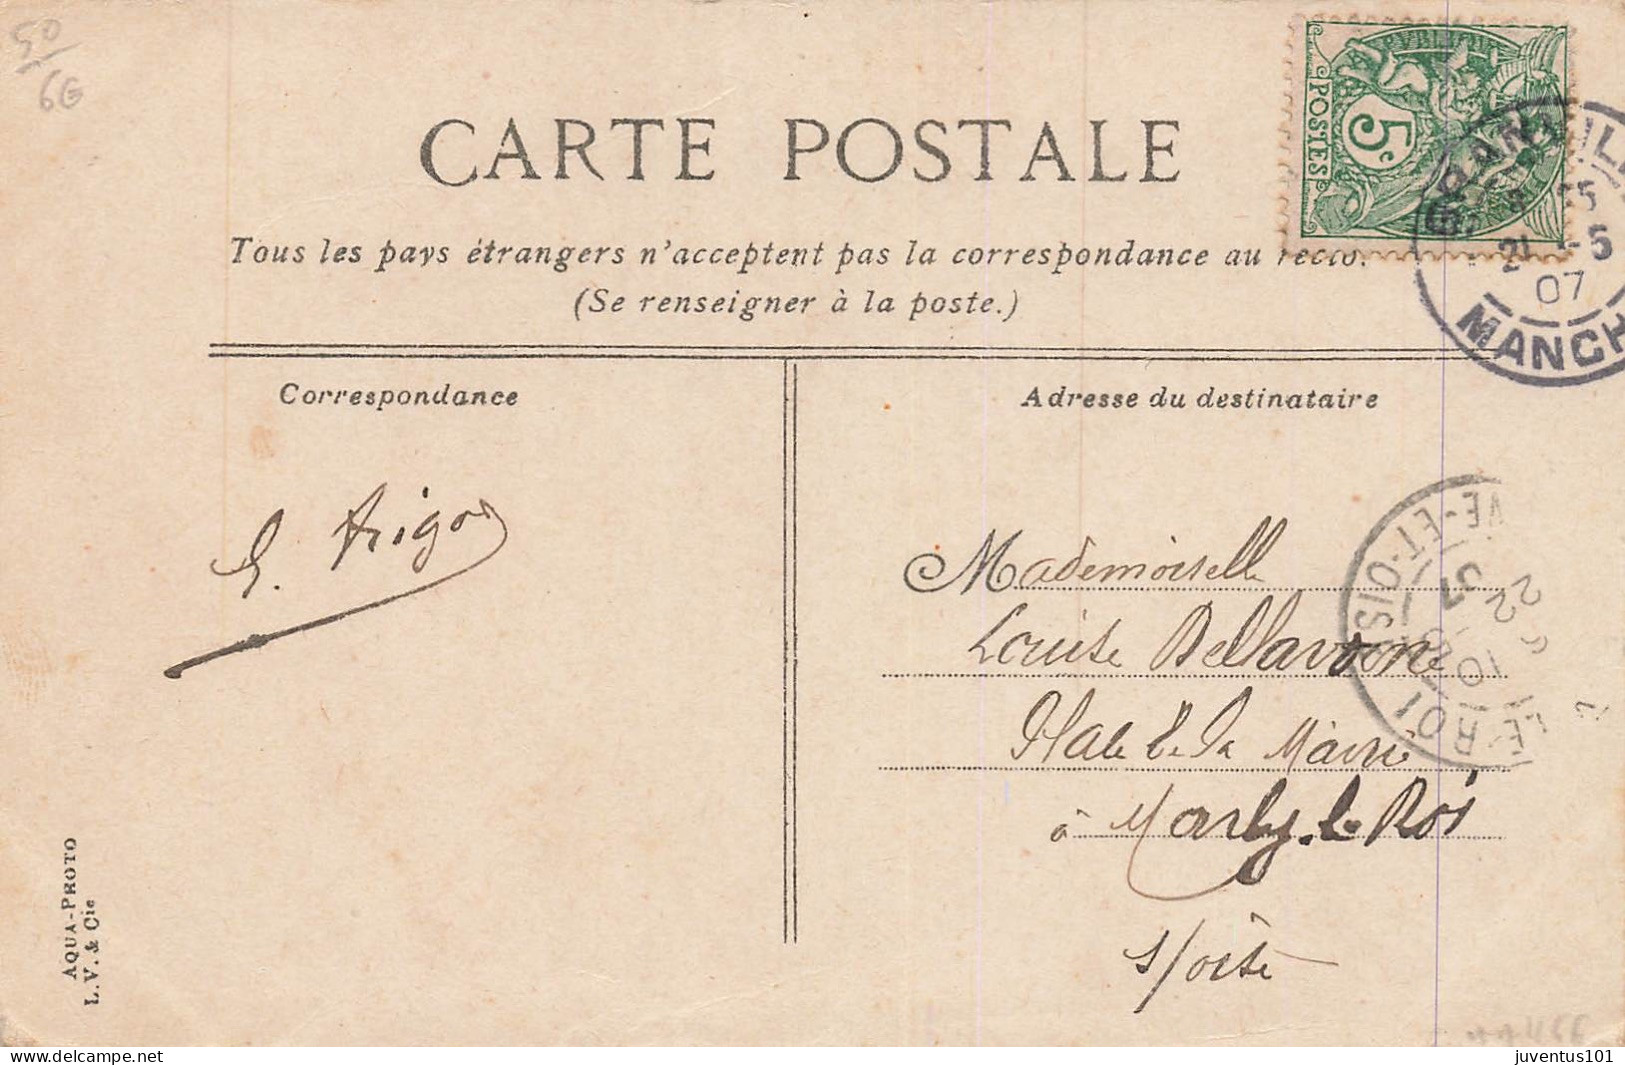 50
6G
CARTE POSTALE
Tous les pays étrangers n'acceptent pas la correspondance au recto.
(Se renseigner à la poste.)
Correspondance
Adresse du destinataire
POSTES
5c
MANCH
21 -5
07
E. Trigo
Mademoiselle
Louise Bellavoine
Place de la Mairie
à Marly-le-Roi
s/oise
VE-ET-OIS
LE-ROI
22
07
10
AQUA-PHOTO
L. V. & Cie
juventus101